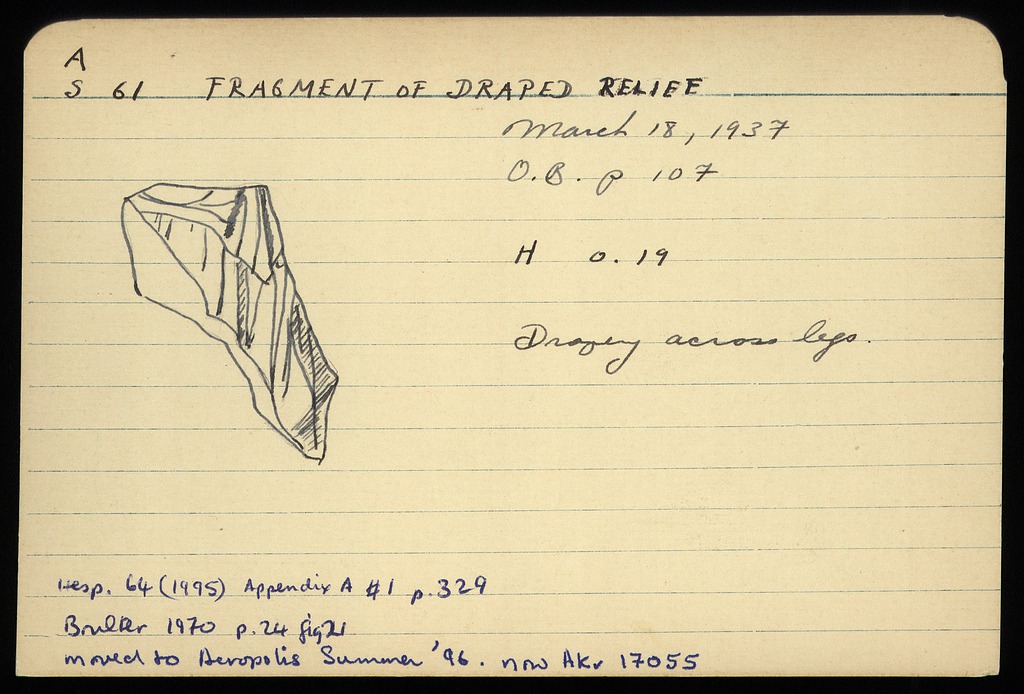 A
S 61 FRAGMENT OF DRAPED RELIEF
March 18, 1937
O.B. p 107
H 0.19
Drapery across legs.
Hesp. 64 (1995) Appendix A #1 p.329
Boulter 1970 p.24 fig 21
moved to Acropolis Summer '96. now Akr 17055